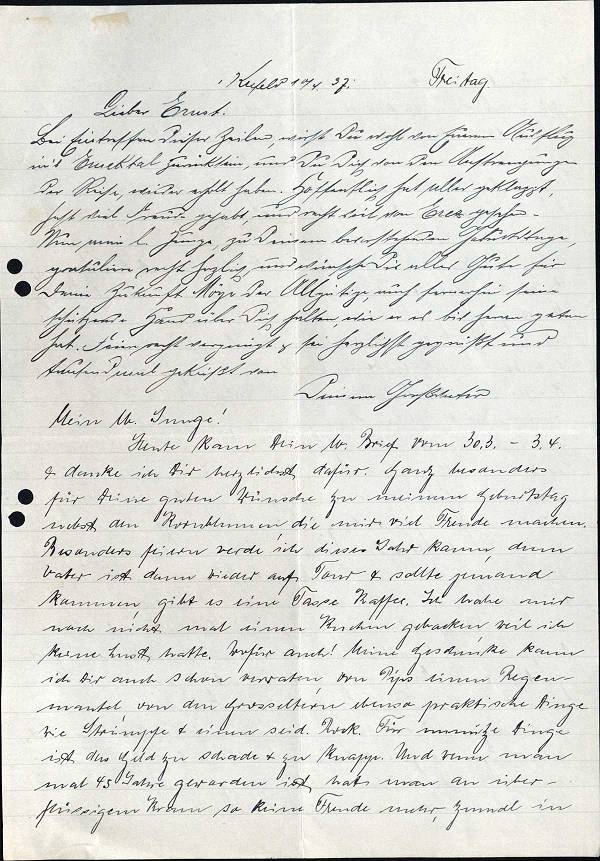 Krefeld 10/4. 37. Freitag
Lieber Ernst.
Bei Eintreffen dieser Zeilen, wirst Du wohl von Eurem Ausflug
ins zurück sein, und Du Dich von den Anstrengungen
der Reise, wieder erholt haben. Hoffentlich hat alles geklappt,
habt viel Freude gehabt, und recht viel von Erez gesehen.
Nun mein l. Junge, zu Deinem bevorstehenden Geburtstage,
gratuliere recht herzlich, und wünsche Dir alles Gute für
Deine Zukunft. Möge der Allgütige, auch fernerhin seine
schützende Hand über Dich halten, wie er es bisher getan
hat. Feiere recht vergnügt & sei herzlichst gegrüßt und
tausendmal geküßt von
Deinem Großvater
Mein lb. Junge!
Heute kam Dein lb. Brief vom 30.3. - 3.4.
& danke ich Dir herzlichst dafür. Ganz besonders
für Deine guten Wünsche zu meinem Geburtstag
nebst den Kornblumen, die mir viel Freude machen.
Besonders feiern werde ich dieses Jahr kaum, denn
Vater ist dann wieder auf Tour & sollte jemand
kommen, gibt es eine Tasse Kaffee. Ich habe mir
noch nicht mal einen Kuchen gebacken weil ich
keine Lust hatte. Wofür auch! Meine Geschenke kann
ich Dir auch schon verraten, von Pips einen Regen-
mantel von den Grosseltern ebenso praktische Dinge
wie Strümpfe & einen seid. Rock. Für unnütze Dinge
ist das Geld zu schade & zu knapp. Und wenn man
mal 45 Jahre geworden ist, hat man an über-
flüssigem Kram so keine Freude mehr, zumal in